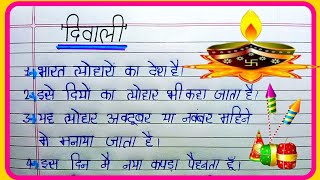 'दिवाली'
1. भारत त्योहारों का देश है।
2. इसे दियो का त्योहार भी कहा जाता है।
3. यह त्योहार अक्टूबर या नवंबर महिने
में मनाया जाता है।
4. इस दिन मै नया कपड़ा पैहनता हूँ।